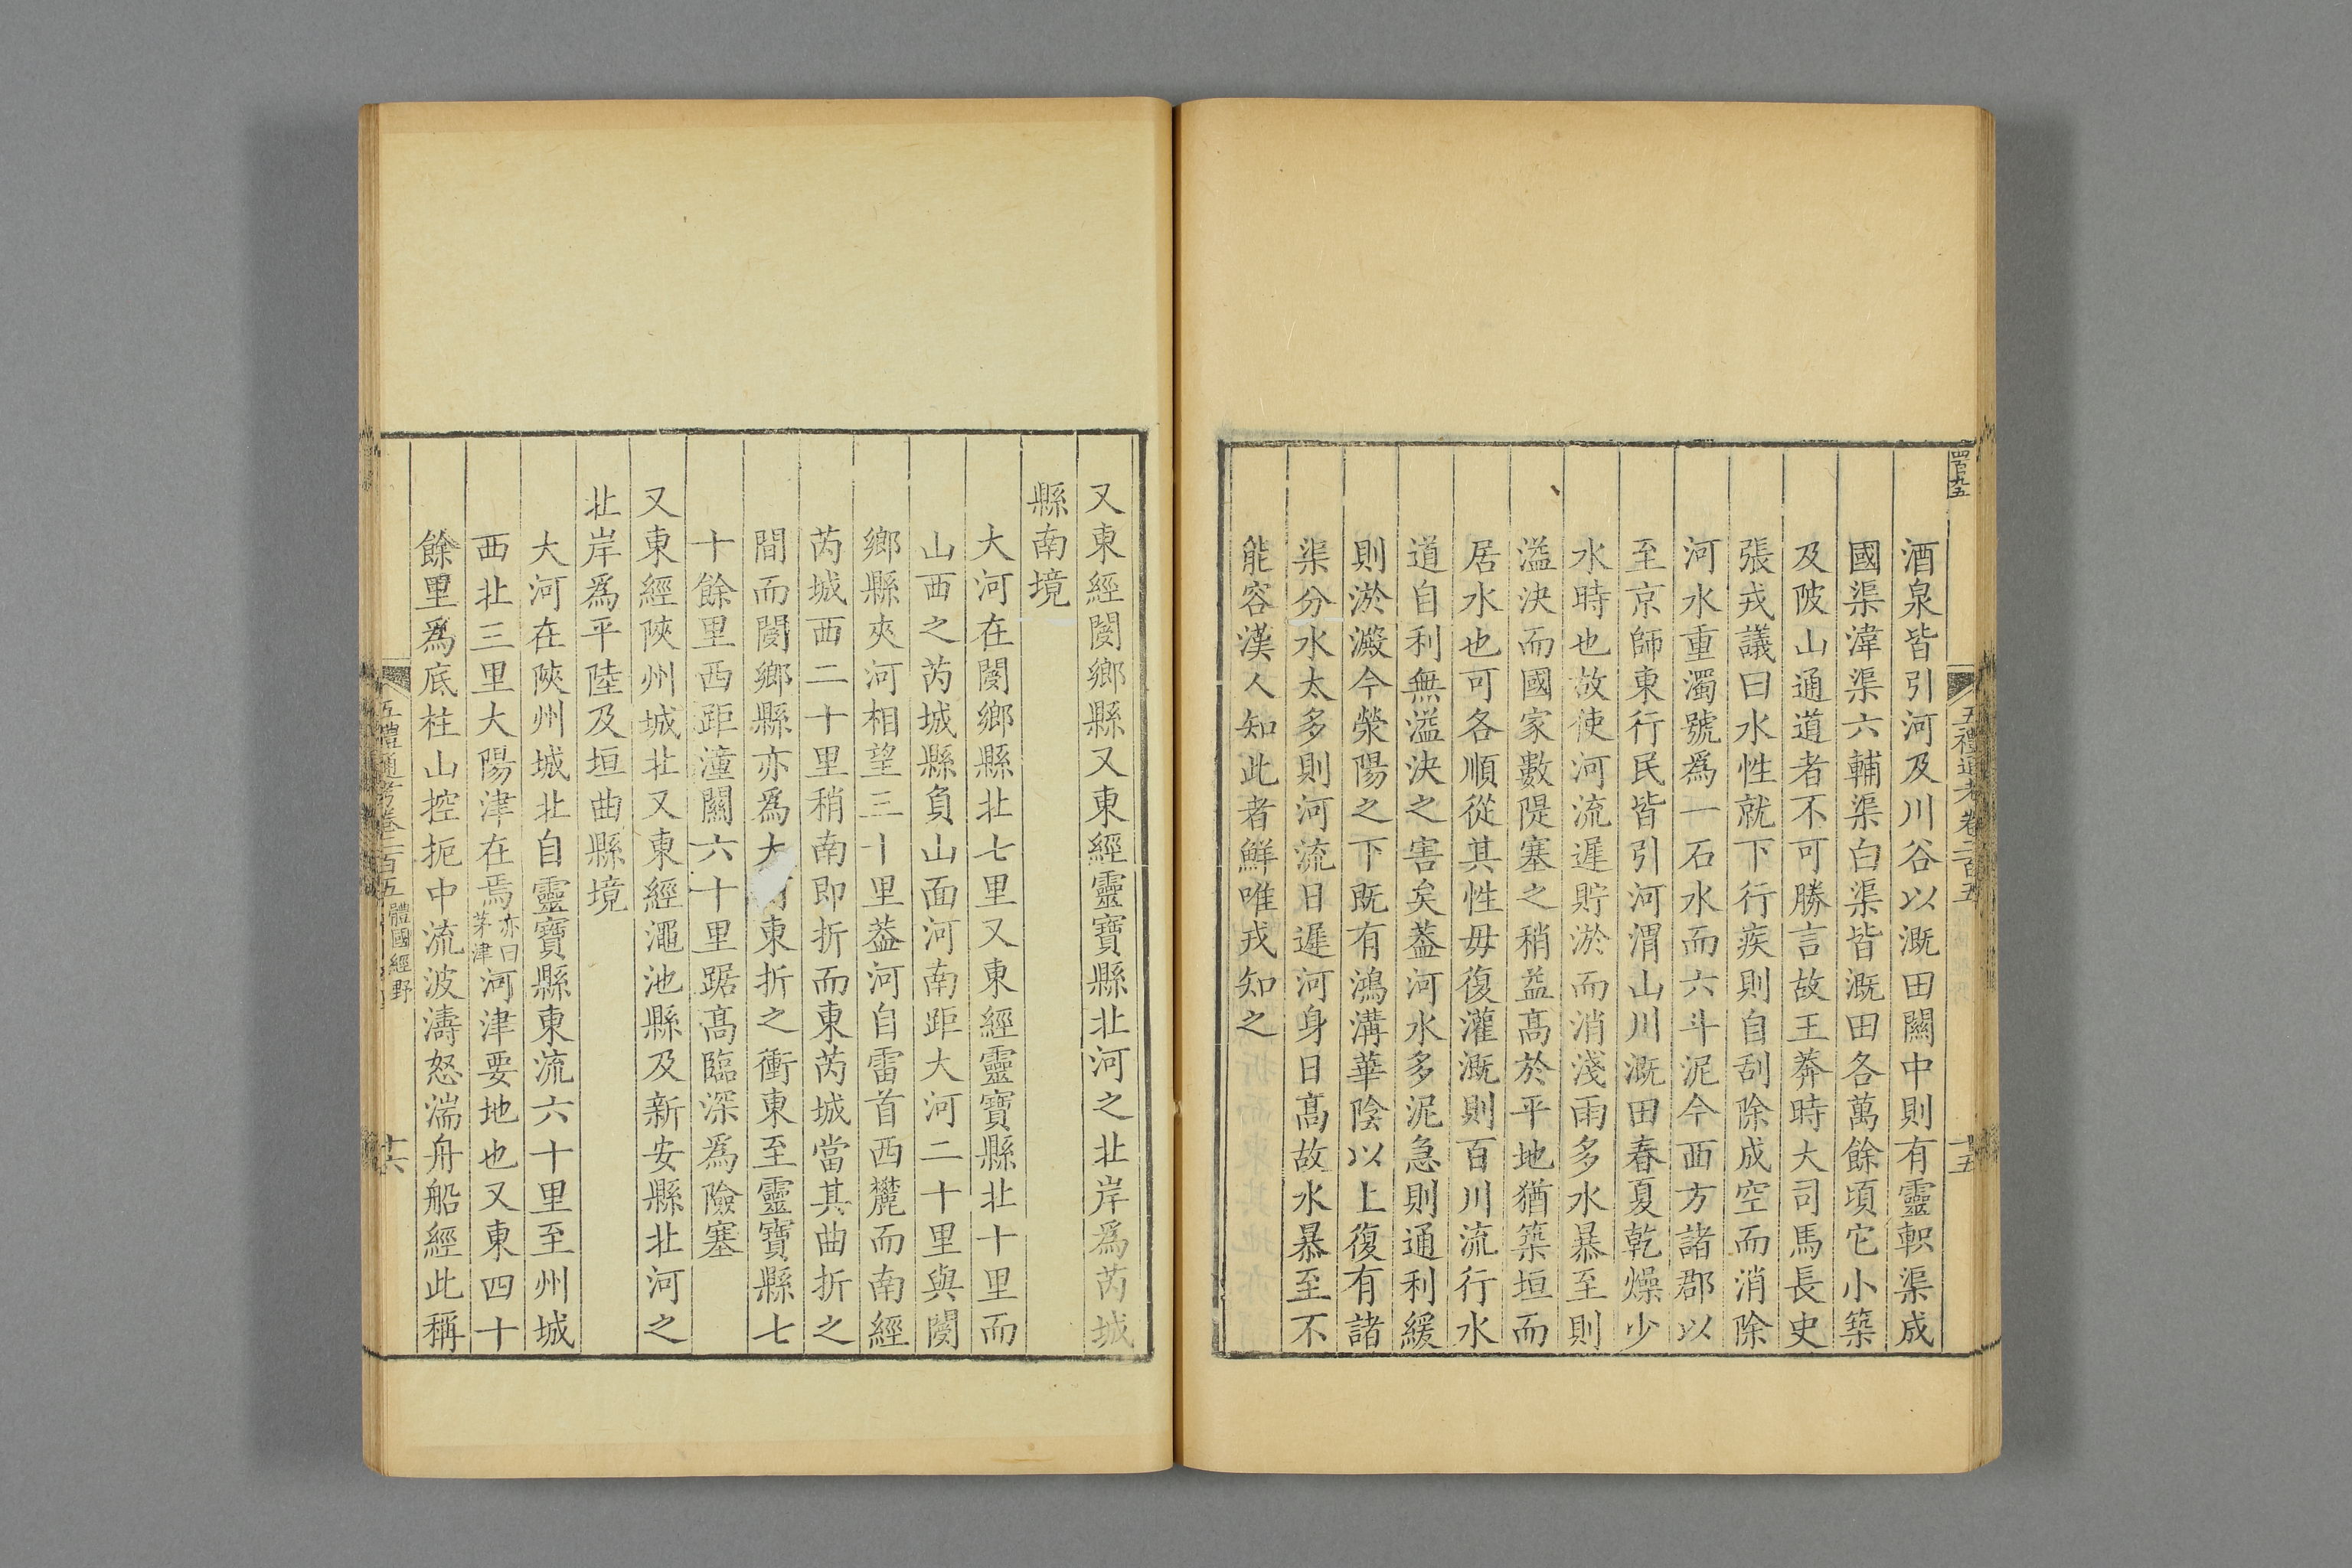 五禮通考卷二百五
十五
酒泉皆引河及川谷以溉田關中則有靈軹渠成
國渠湋渠六輔渠白渠皆溉田各萬餘頃它小築
及陂山通道者不可勝言故王莽時大司馬長史
張戎議曰水性就下行疾則自刮除成空而消除
河水重濁號爲一石水而六斗泥今西方諸郡以
至京師東行民皆引河渭山川溉田春夏乾燥少
水時也故使河流遲貯淤而消淺雨多水暴至則
溢決而國家數隄塞之稍益髙於平地猶築垣而
居水也可各順從其性毋復灌溉則百川流行水
道自利無溢決之害矣葢河水多泥急則通利緩
則淤澱今滎陽之下既有鴻溝華陰以上復有諸
渠分水太多則河流日遲河身日髙故水暴至不
能容漢人知此者鮮唯戎知之
又東經閿鄉縣又東經靈寶縣北河之北岸爲芮城
縣南境
大河在閿鄉縣北七里又東經靈寶縣北十里而
山西之芮城縣負山面河南距大河二十里與閿
鄉縣夾河相望三十里葢河自雷首西麓而南經
芮城西二十里稍南即折而東芮城當其曲折之
間而閿鄉縣亦爲大河東折之衝東至靈寶縣七
十餘里西距潼關六十里踞髙臨深爲險塞
又東經陝州城北又東經澠池縣及新安縣北河之
北岸爲平陸及垣曲縣境
大河在陝州城北自靈寶縣東流六十里至州城
西北三里大陽津在焉亦曰茅津河津要地也又東四十
餘里爲底柱山控扼中流波濤怒湍舟船經此稱
五禮通考卷二百五 體國經野
十六